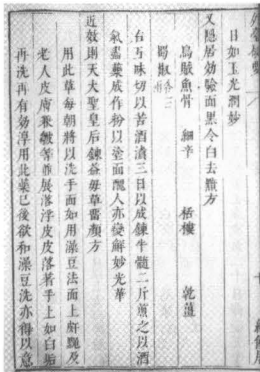 日如玉光潤妙
又隱居効驗面黑令白去䵟方
烏賊魚骨 細辛 栝樓 乾薑
蜀椒 各三兩
右五味切以苦酒漬三日以成鍊牛髓二斤煎之以酒
氣盡藥成作粉以塗面醜人亦變鮮妙光華
近効則天大聖皇后鍊益母草留顏方
用此草每朝將以洗手面如用澡豆法面上皯䵟及
老人皮膚兼皺等並展落浮皮皮落著手上如白垢
再洗再有効淳用此藥已後欲和澡豆洗亦得以意